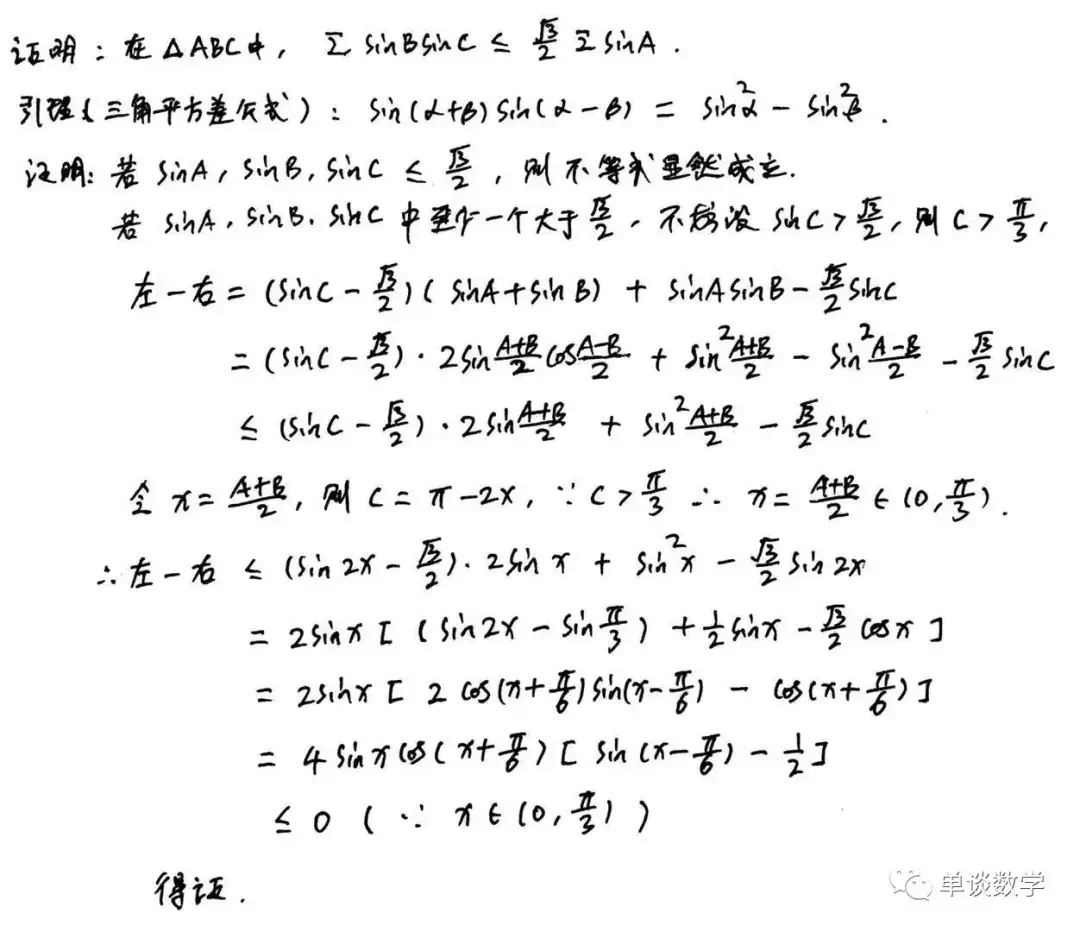 证明：在△ABC中，Σ sinBsinC ≤ √3/2 Σ sinA.
引理（三角平方差公式）：sin(α+β)sin(α-β) = sin²α - sin²β.
证明：若 sinA, sinB, sinC ≤ √3/2，则不等式显然成立.
若 sinA, sinB, sinC 中至少一个大于 √3/2，不妨设 sinC > √3/2，则 C > π/3，
左-右 = (sinC - √3/2)(sinA+sinB) + sinAsinB - √3/2 sinC
= (sinC - √3/2)·2sin (A+B)/2 cos (A-B)/2 + sin² (A+B)/2 - sin² (A-B)/2 - √3/2 sinC
≤ (sinC - √3/2)·2sin (A+B)/2 + sin² (A+B)/2 - √3/2 sinC
令 x = (A+B)/2，则 C = π-2x，∵ C > π/3 ∴ x = (A+B)/2 ∈ (0, π/3).
∴ 左-右 ≤ (sin2x - √3/2)·2sinx + sin²x - √3/2 sin2x
= 2sinx [ (sin2x - sin π/3) + 1/2 sinx - √3/2 cosx ]
= 2sinx [ 2cos(x+π/6)sin(x-π/6) - cos(x+π/6) ]
= 4sinxcos(x+π/6) [ sin(x-π/6) - 1/2 ]
≤ 0 (∵ x ∈ (0, π/3))
得证.
单谈数学